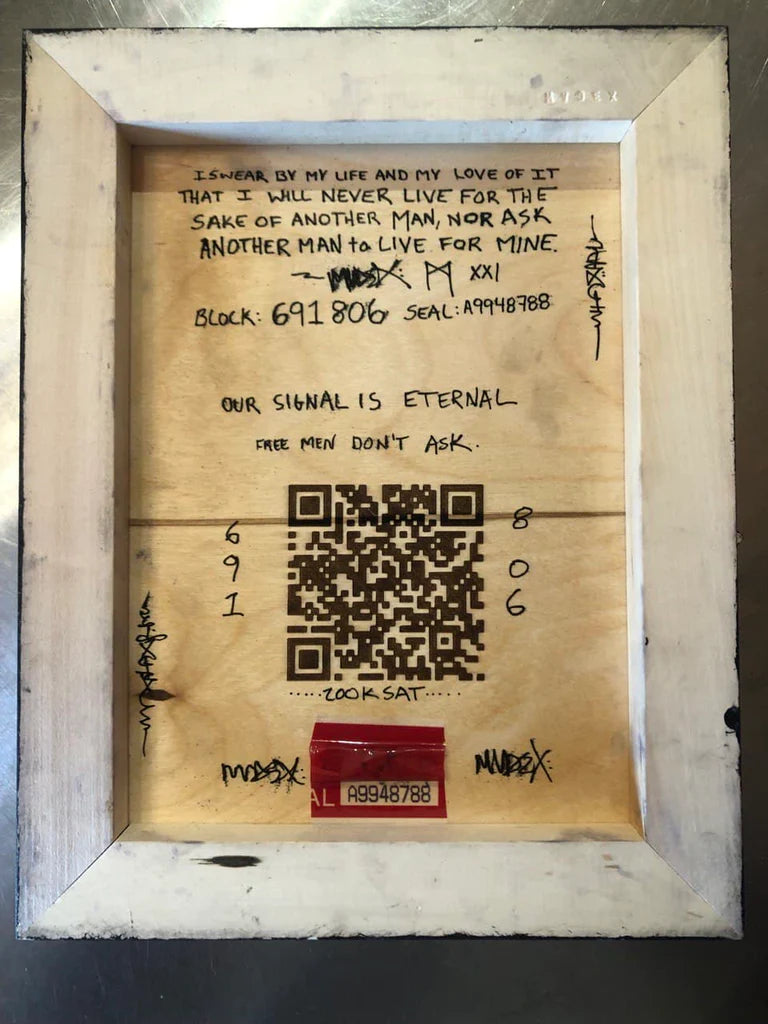 I SWEAR BY MY LIFE AND MY LOVE OF IT
THAT I WILL NEVER LIVE FOR THE
SAKE OF ANOTHER MAN, NOR ASK
ANOTHER MAN to LIVE FOR MINE.
XXI
BLOCK: 691806 SEAL: A9948788
OUR SIGNAL IS ETERNAL
FREE MEN DON'T ASK.
6 8
9 0
1 6
.....200K SAT.....
AL A9948788